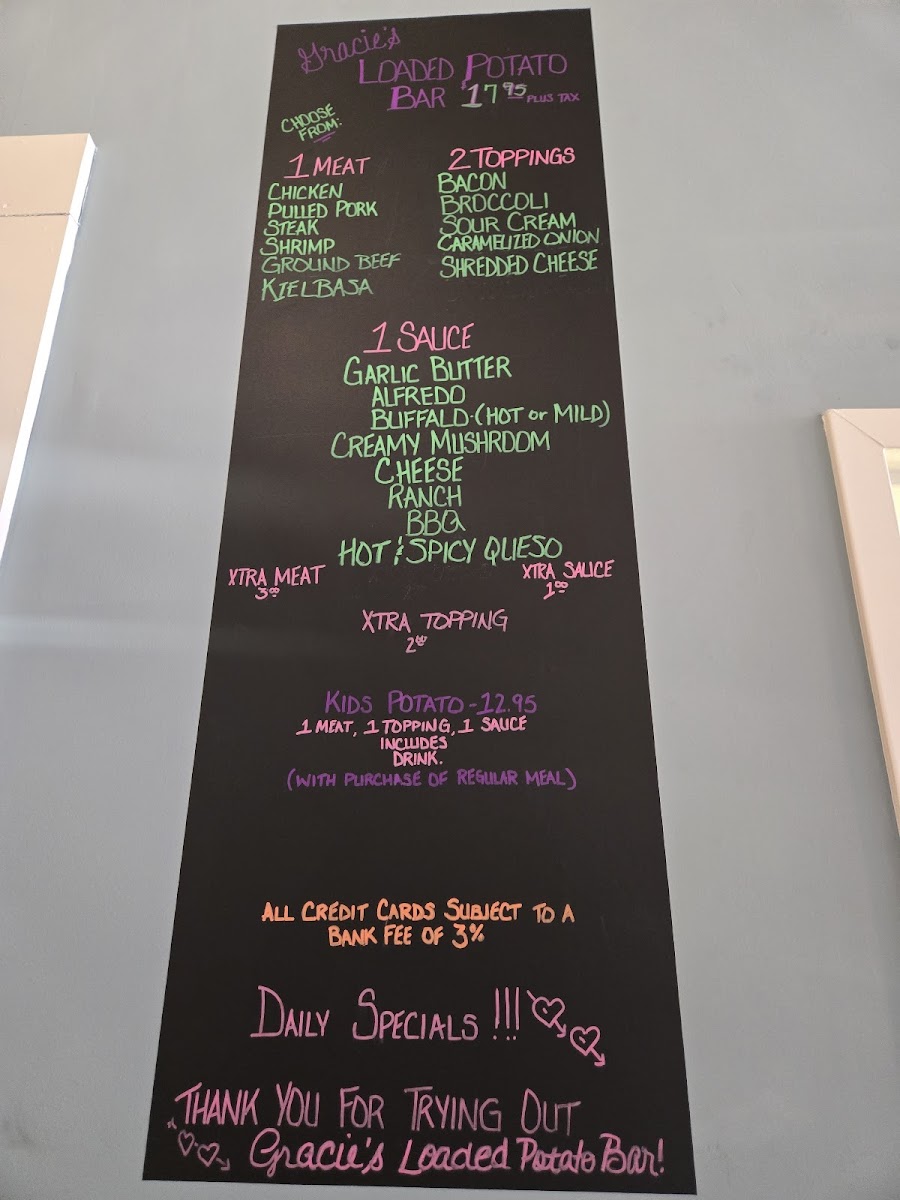 Gracie's
LOADED POTATO
BAR $17.95 PLUS TAX
CHOOSE
FROM:
1 MEAT
CHICKEN
PULLED PORK
STEAK
SHRIMP
GROUND BEEF
KIELBASA
2 TOPPINGS
BACON
BROCCOLI
SOUR CREAM
CARAMELIZED ONION
SHREDDED CHEESE
1 SAUCE
GARLIC BUTTER
ALFREDO
BUFFALO-(HOT or MILD)
CREAMY MUSHROOM
CHEESE
RANCH
BBQ
HOT & SPICY QUESO
XTRA MEAT
3.00
XTRA SAUCE
1.00
XTRA TOPPING
2.00
KIDS POTATO - 12.95
1 MEAT, 1 TOPPING, 1 SAUCE
INCLUDES
DRINK.
(WITH PURCHASE OF REGULAR MEAL)
ALL CREDIT CARDS SUBJECT TO A
BANK FEE OF 3%
DAILY SPECIALS !!!
THANK YOU FOR TRYING OUT
Gracie's Loaded Potato Bar!